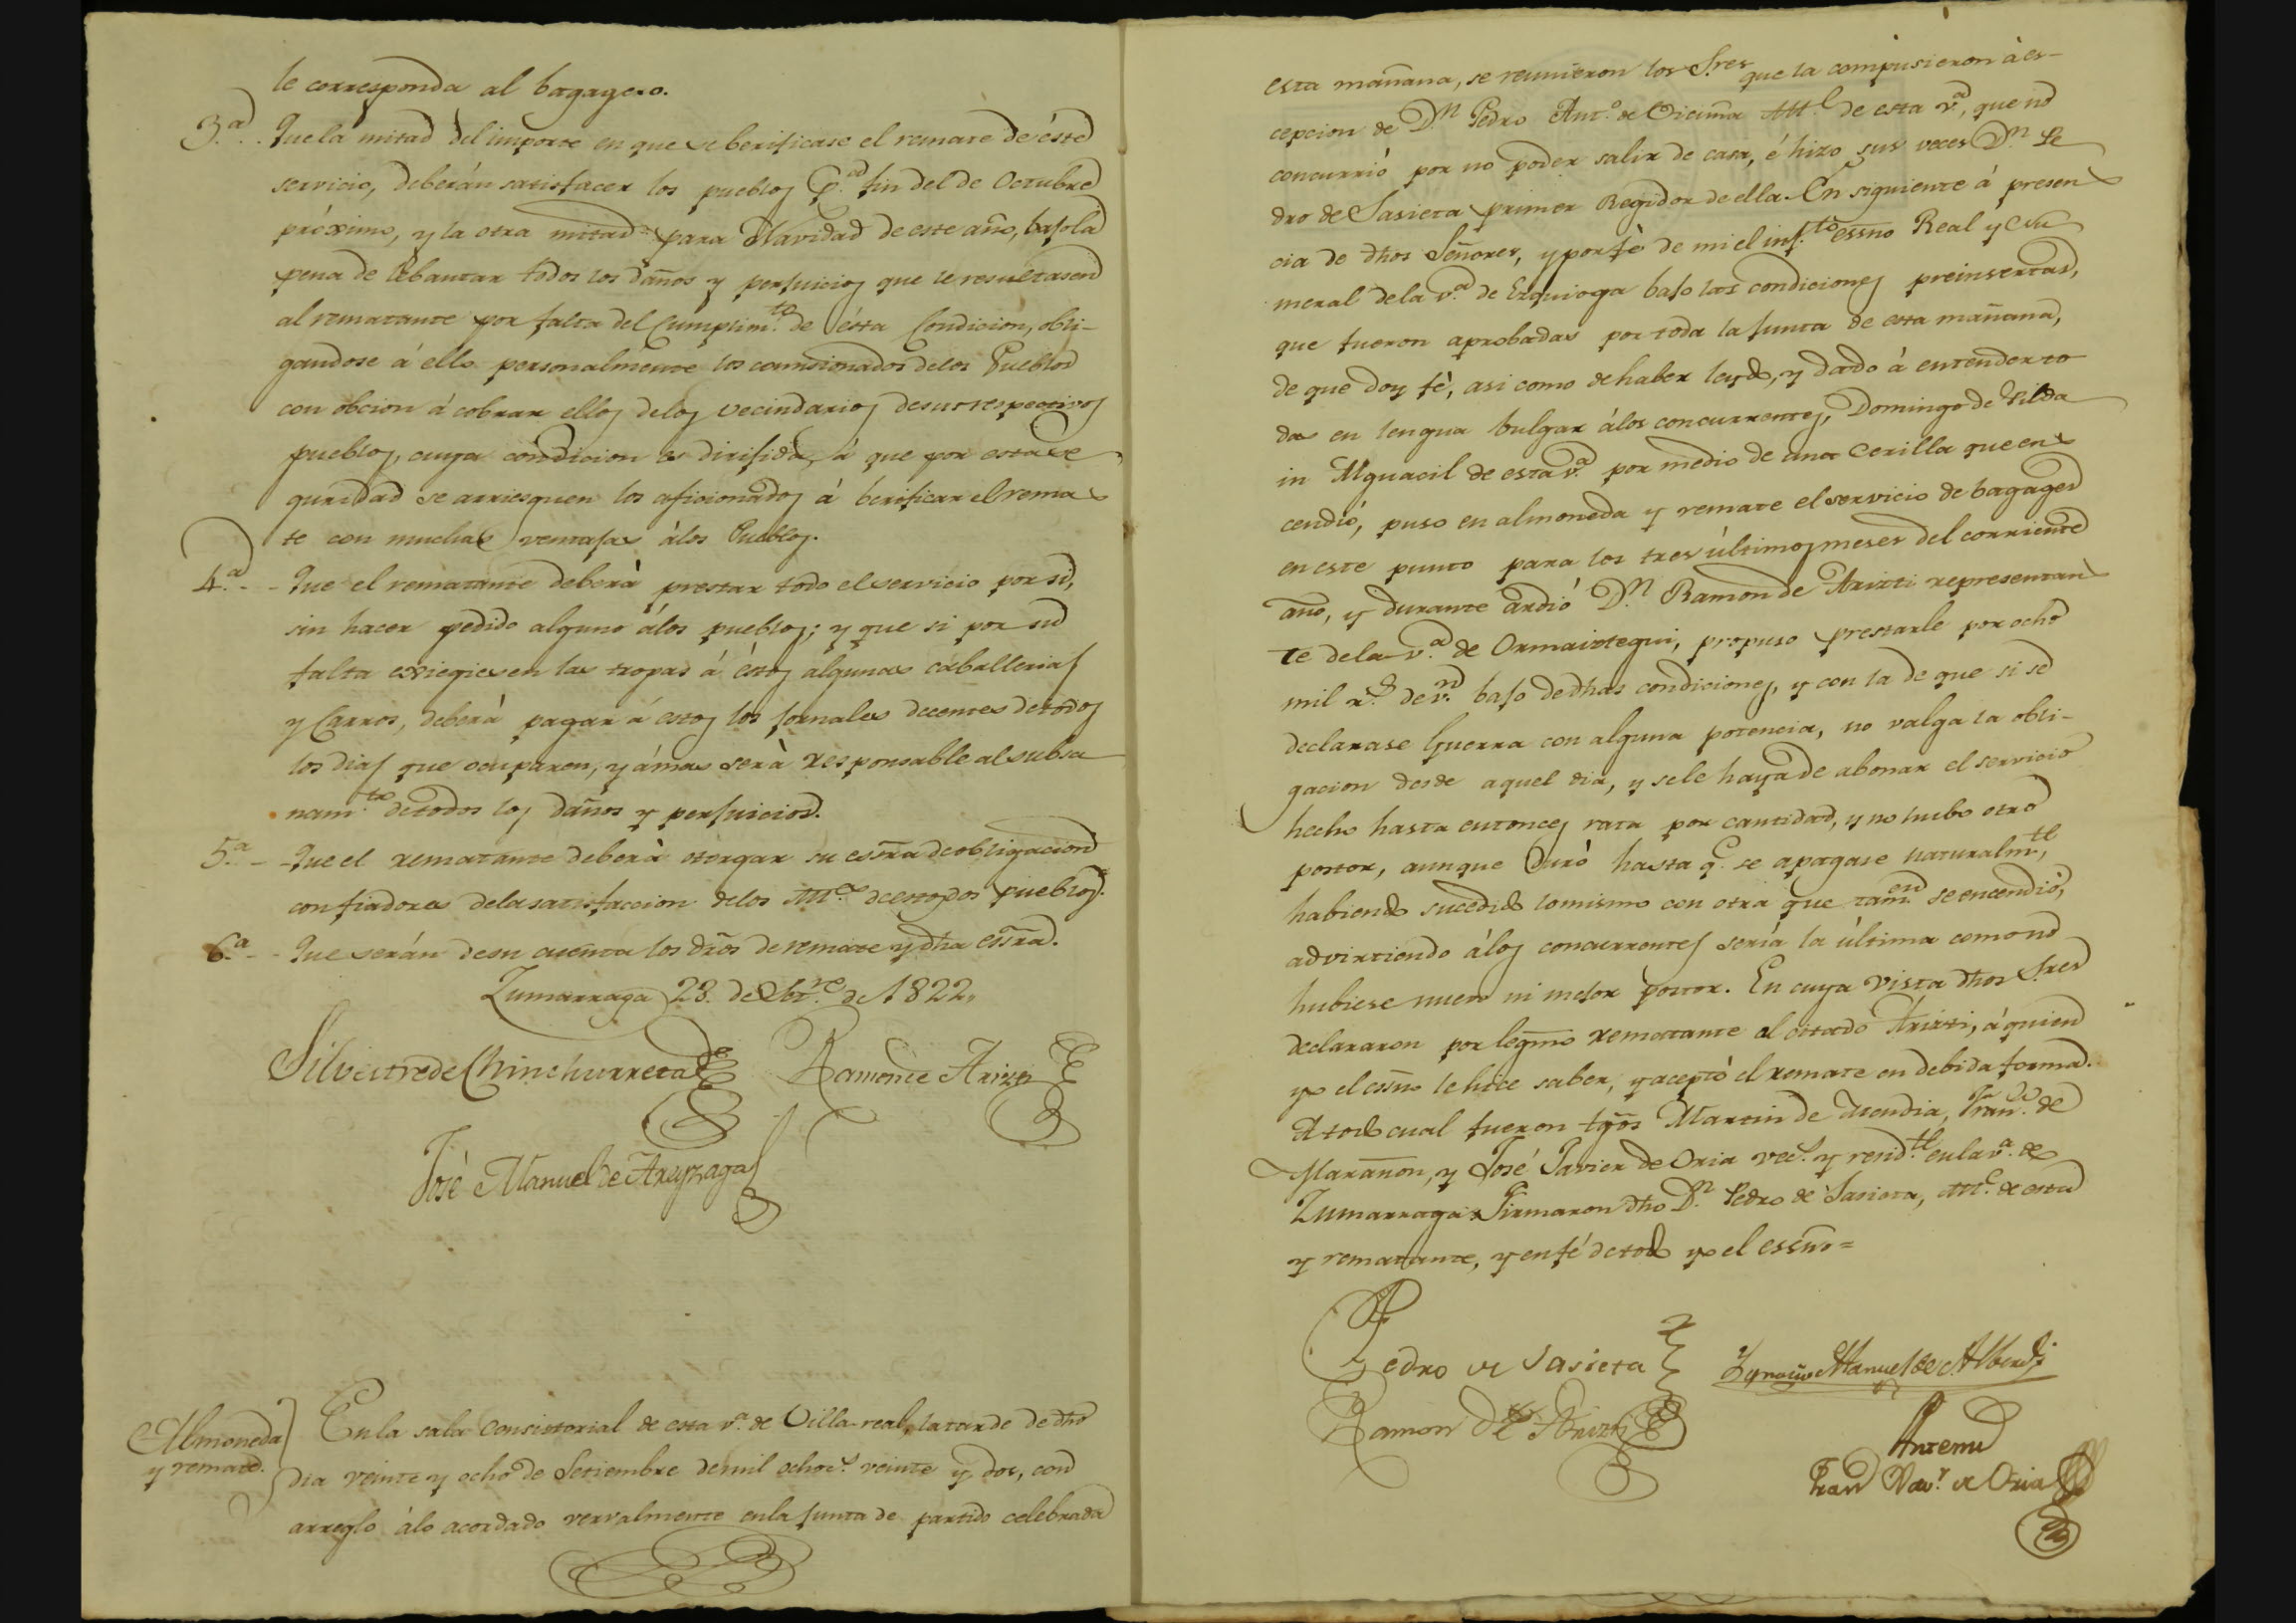 le corresponda al bagagero.
3.ª . . Que la mitad del importe en que se berificase el remate de éste
servicio, deberán satisfacer los pueblos p.ª fin del de Octubre
próximo, y la otra mitad para Navidad de este año, bajo la
pena de lebantar todos los daños y perjuicios que le resultasen
al rematante por falta del Cumplim.to de ésta Condicion, obli-
gandose á ello personalmente los comisionados delos Pueblos
con obcion á cobrar ellos delos vecindarios desus respectivos
pueblos, cuya condicion es dirijida, á que por esta se
guridad se arriesquen los aficionados á berificar el rema
te con muchas ventajas álos Pueblos.
4.ª - - Que el rematante deberà prestar todo el servicio por si,
sin hacer pedido alguno álos pueblos; y que si por su
falta exiegiesen las tropas á éstos algunas caballerias
y Carros, deberà pagar á estos los jornales decentes detodos
los dias que ocuparen, y ámas serà responsable al subsa
nam.to detodos los daños y perjuicios.
5.ª - - Que el rematante deberà otorgar su essra de obligacion
con fiadores dela satisfaccion delos All.es deestos dos pueblos.
6.ª - - Que serán desu cuenta los dros de remate y dha essra.
Zumarraga 28. de Sbr.re de 1822.
Silvestre de Chinchurreta Ramon de Arizti
José Manuel de Areyzaga
Almoneda
y remate.
En la sala Consistorial de esta v.ª de Villa-real, la tarde de dho
dia veinte y ocho de Setiembre demil ochoc.s veinte y dos, con
arreglo álo acordado vervalmente enla junta de partido celebrada
esta mañana, se reunieron los S.res que la compusieron à es-
cepcion de D.n Pedro Ant.o de All.e de esta v.ª, que no
concurrió por no poder salir de casa, é hizo sus veces D.n Pe
dro de Sasieta primer Regidor de ella. En siguiente á presen
cia de dhos Señores, y por fè de mi el inf.to essno Real y Nu
meral dela v.ª de Ezquioga bajo las condiciones preinsertas,
que fueron aprobadas por toda la junta de esta mañana,
de que doy fè, asi como de haber leydo, y dado à entender to
das en lengua bulgar álos concurrentes, Domingo de
in Alguacil de esta v.ª por medio de una Cerilla que en
cendió, puso en almoneda y remate el servicio de bagages
en este punto para los tres últimos meses del corriente
año, y durante ardió D.n Ramon de Arizti representan
te dela v.ª de Ormaiztegui, propuso prestarle por ocho
mil r.s de v.n bajo dedhas condiciones, y con la de que si se
declarase Guerra con alguna potencia, no valga la obli-
gacion desde aquel dia, y sele haya de abonar el servicio
hecho hasta entonces rata por cantidad, y no hubo otro
postor, aunque duró hasta q.e se apagase naturalm.te,
habiendo sucedido lomismo con otra que tam.en se encendió,
advirtiendo álos concurrentes sería la última como no
hubiese nuevo ni mejor postor. En cuya vista dhos S.res
declararon por legmo rematante al citado Arizti, á quien
yo el essno le hice saber, y aceptò el remate en debida forma.
A todo cual fueron tgos Martin de Mendia, Fran.co de
Marañon, y José Javier de Oria vec.s y resid.tes en la v.ª de
Zumarraga. Firmaron dho D.n Pedro de Sasieta, All.e de esta
y rematante, y en fé detodo yo el essno =
Pedro de Sasieta Ygnacio Manuel de Alberdi
Ramon de Arizti
Antemi
Fran Xav.r de Oria